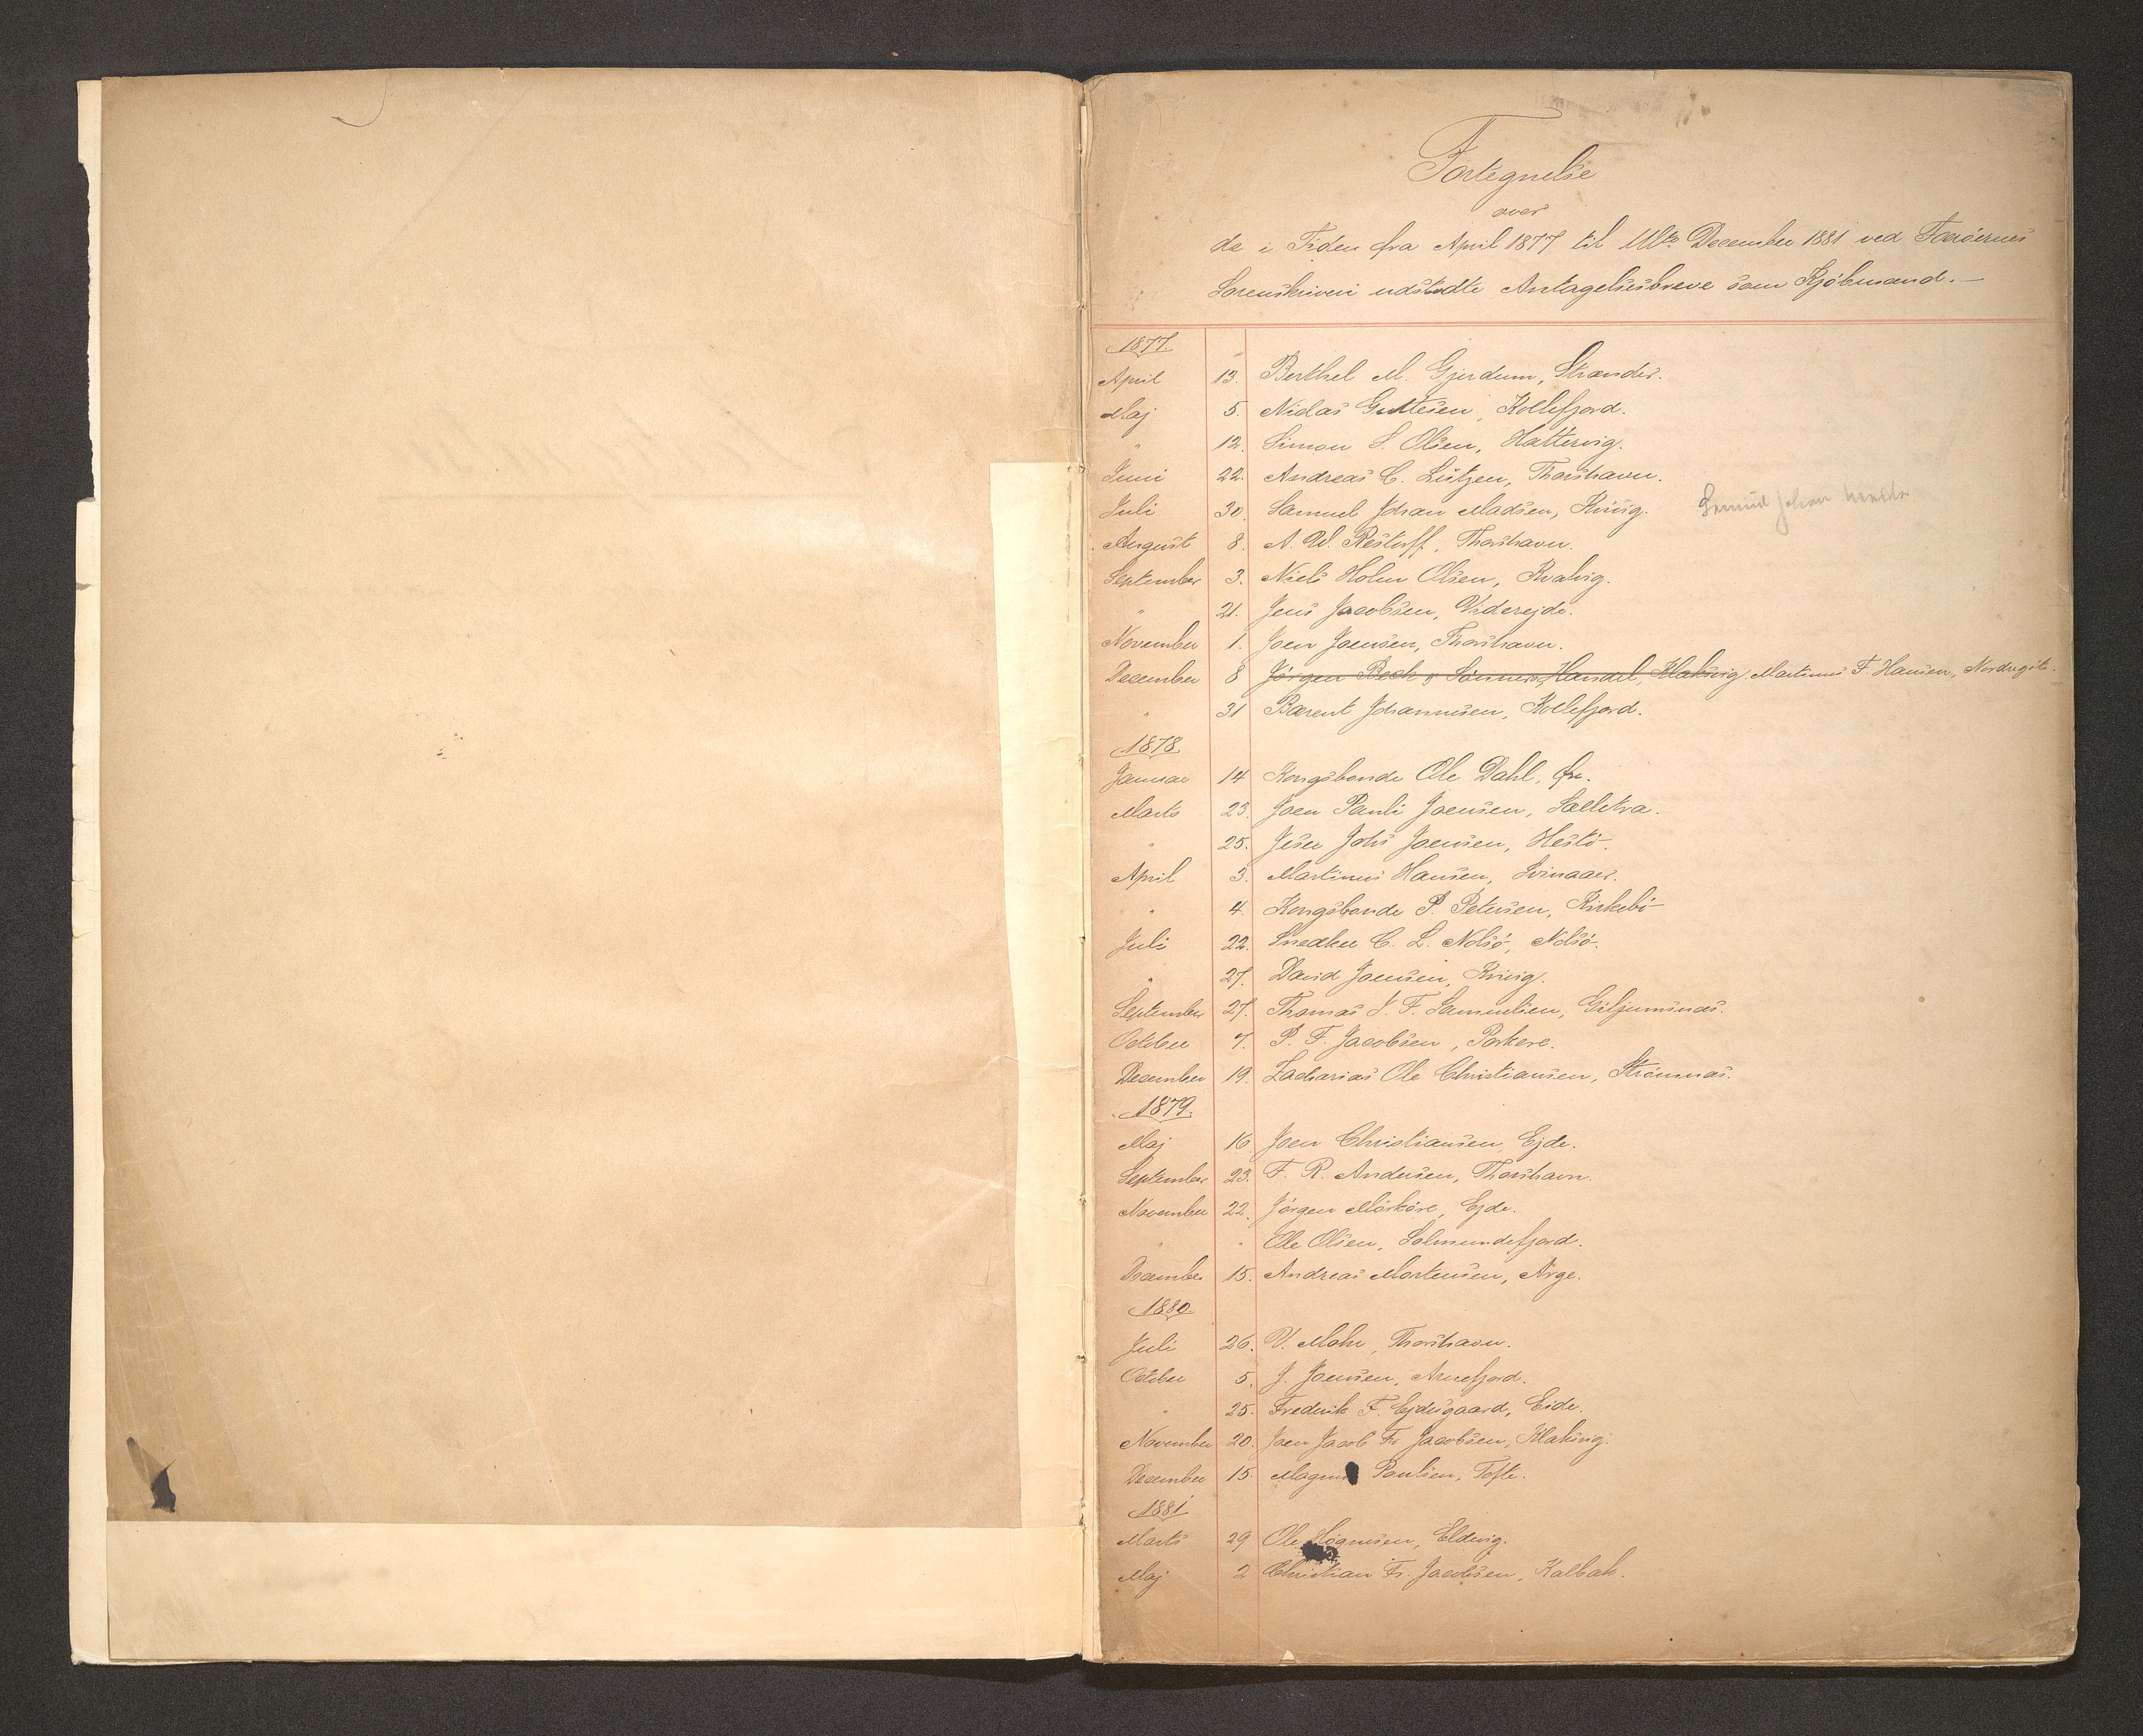 Fortegnelse
over
de i Tiden fra April 1877 til Ulto December 1881 ved Færøernes
Sorenskriveri udstedte Antagelsesbreve som Kjøbmand.—
1877.
April 13. Berthel M. Gjerdum, Strander.
Maj 5. Niclas Guttesen, Kollefjord.
" 12. Simon S. Olsen, Hattervig.
Juni 22. Andreas C. Lützen, Thorshavn.
Juli 30. Samuel Johan Madsen, Kvivig. Samuel Johan
August 8. A. W. Restorff, Thorshavn.
September 3. Niels Holm Olsen, Kvalvig.
" 21. Jens Jacobsen, Viderejde.
November 1. Joen Joensen, Thorshavn.
December 8 Jørgen Bech & Sønners Handel, Klaksvig. Martinus F. Hansen, Nordregøte.
" 31 Barent Johannesen, Kollefjord.
1878.
Januar 14 Kongsbonde Ole Dahl, Øre.
Marts 23. Joen Pauli Joensen, Selletra.
" 25. Johs Joensen, Hestø.
April 3. Martinus Hansen, Svinaaer.
" 4. Kongsbonde P. Petersen, Kirkebø
Juli 22. Snedker C. L. Nolsø, Nolsø.
" 27. David Joensen, Kvivig.
September 27. Thomas J. F. Samuelsen, Giljumsnæs.
October 7. P. F. Jacobsen, Porkere.
December 19. Zacharias Ole Christiansen, Strømnæs.
1879.
Maj 16. Joen Christiansen, Ejde.
September 23. F. R. Andersen, Thorshavn.
November 22. Jørgen Mørkøre, Ejde.
" " Ole Olsen, Solmundefjord.
December 15. Andreas Mortensen, Arge.
1880.
Juli 26. V. Mohr, Thorshavn.
October 5. J. Joensen, Arnefjord.
" 25. Frederik F. Ejdesgaard, Eide.
November 20. Joen Jacob Fr. Jacobsen, Klaksvig.
December 15. Magnus Poulsen, Tofte.
1881
Marts 29 Ole Eldevig.
Maj 2 Christian Fr. Jacobsen, Kalbak.